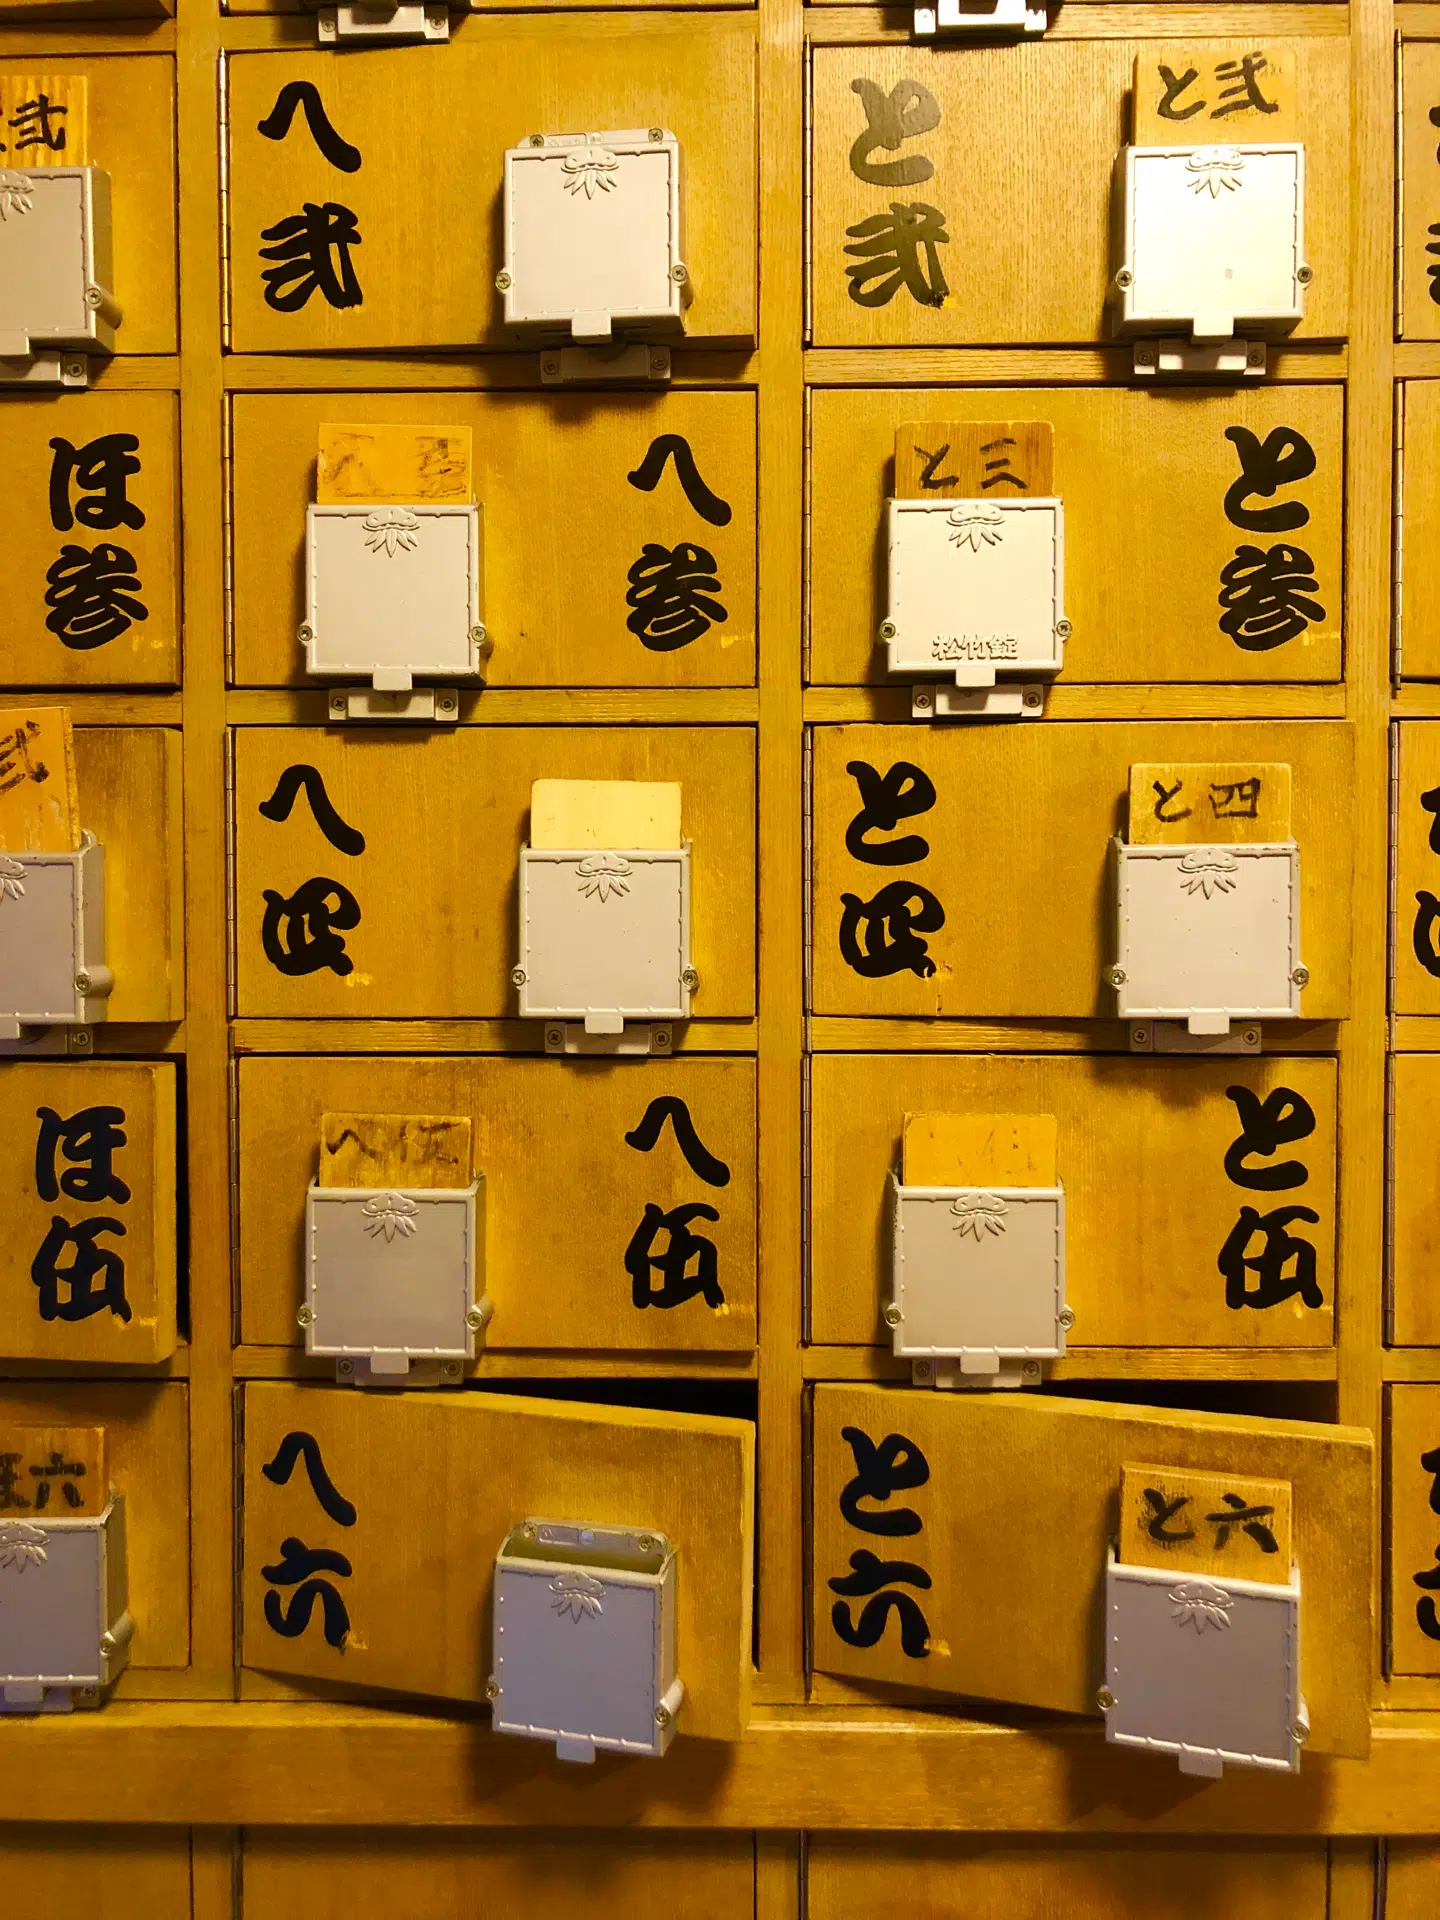 へ弐
と弐
と弐
ほ参
へ参
と三
松竹錠
と参
弐
へ四
と四
と四
ほ伍
へ伍
へ伍
と伍
六
へ六
と六
と六